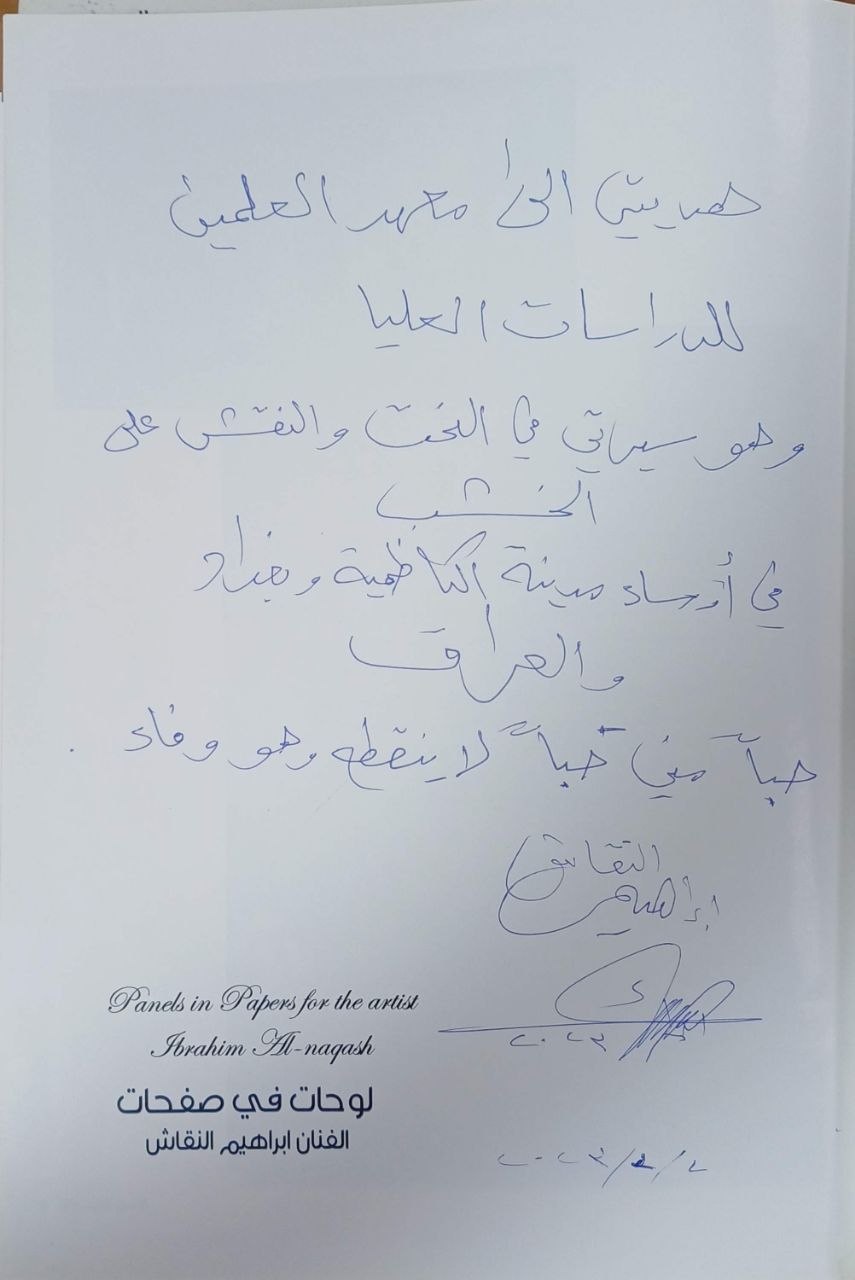 هديتي الى معهد العلمين
للدراسات العليا
وهو سيرتي في النحت والنقش على
الخشب
في أرجاء مدينة الكاظمية وبغداد
والعراق
حباً مني حباً لا ينقطع وهو وفاء .
النقاش
ابراهيم
٢٠٢٣
Panels in Papers for the artist
Ibrahim Al-naqash
لوحات في صفحات
الفنان ابراهيم النقاش